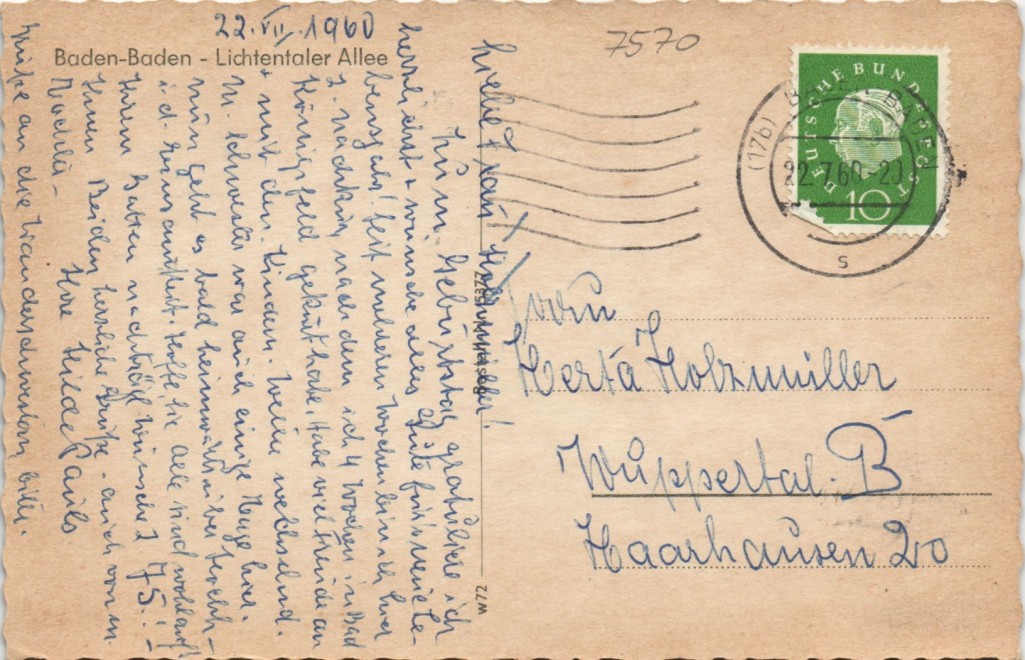 22. VII. 1960
Baden-Baden - Lichtentaler Allee
7570
DEUTSCHE BUNDESPOST
10
(17b) BADEN-BADEN
22.7.60-20
s
Liebe Frau Holzmüller!
Zu Ihrem Geburtstag gratuliere ich
herzlichst + wünsche alles Gute fürs neue Le-
bensjahr! Seit mehreren Wochen bin ich hier
z. Nachkur, nachdem ich 4 Wochen in Bad
Königsfeld gekurt habe. Habe viel Freude an
+ mit den Kindern. Weile wechselnd.
M. Schwester war auch einige Tage hier.
nun geht es bald heimwärts über
i.d. Hoffe, Sie alle sind wohlauf!
Ihrem nachträgl. Wünsche z. 75.!! -
Ihnen Beiden herzliche Grüße - auch von m.
Ihre Hilde Pauls
Grüße an die bitte.
W72
Frau
Herta Holzmüller
Wuppertal-B
Haarhausen 20